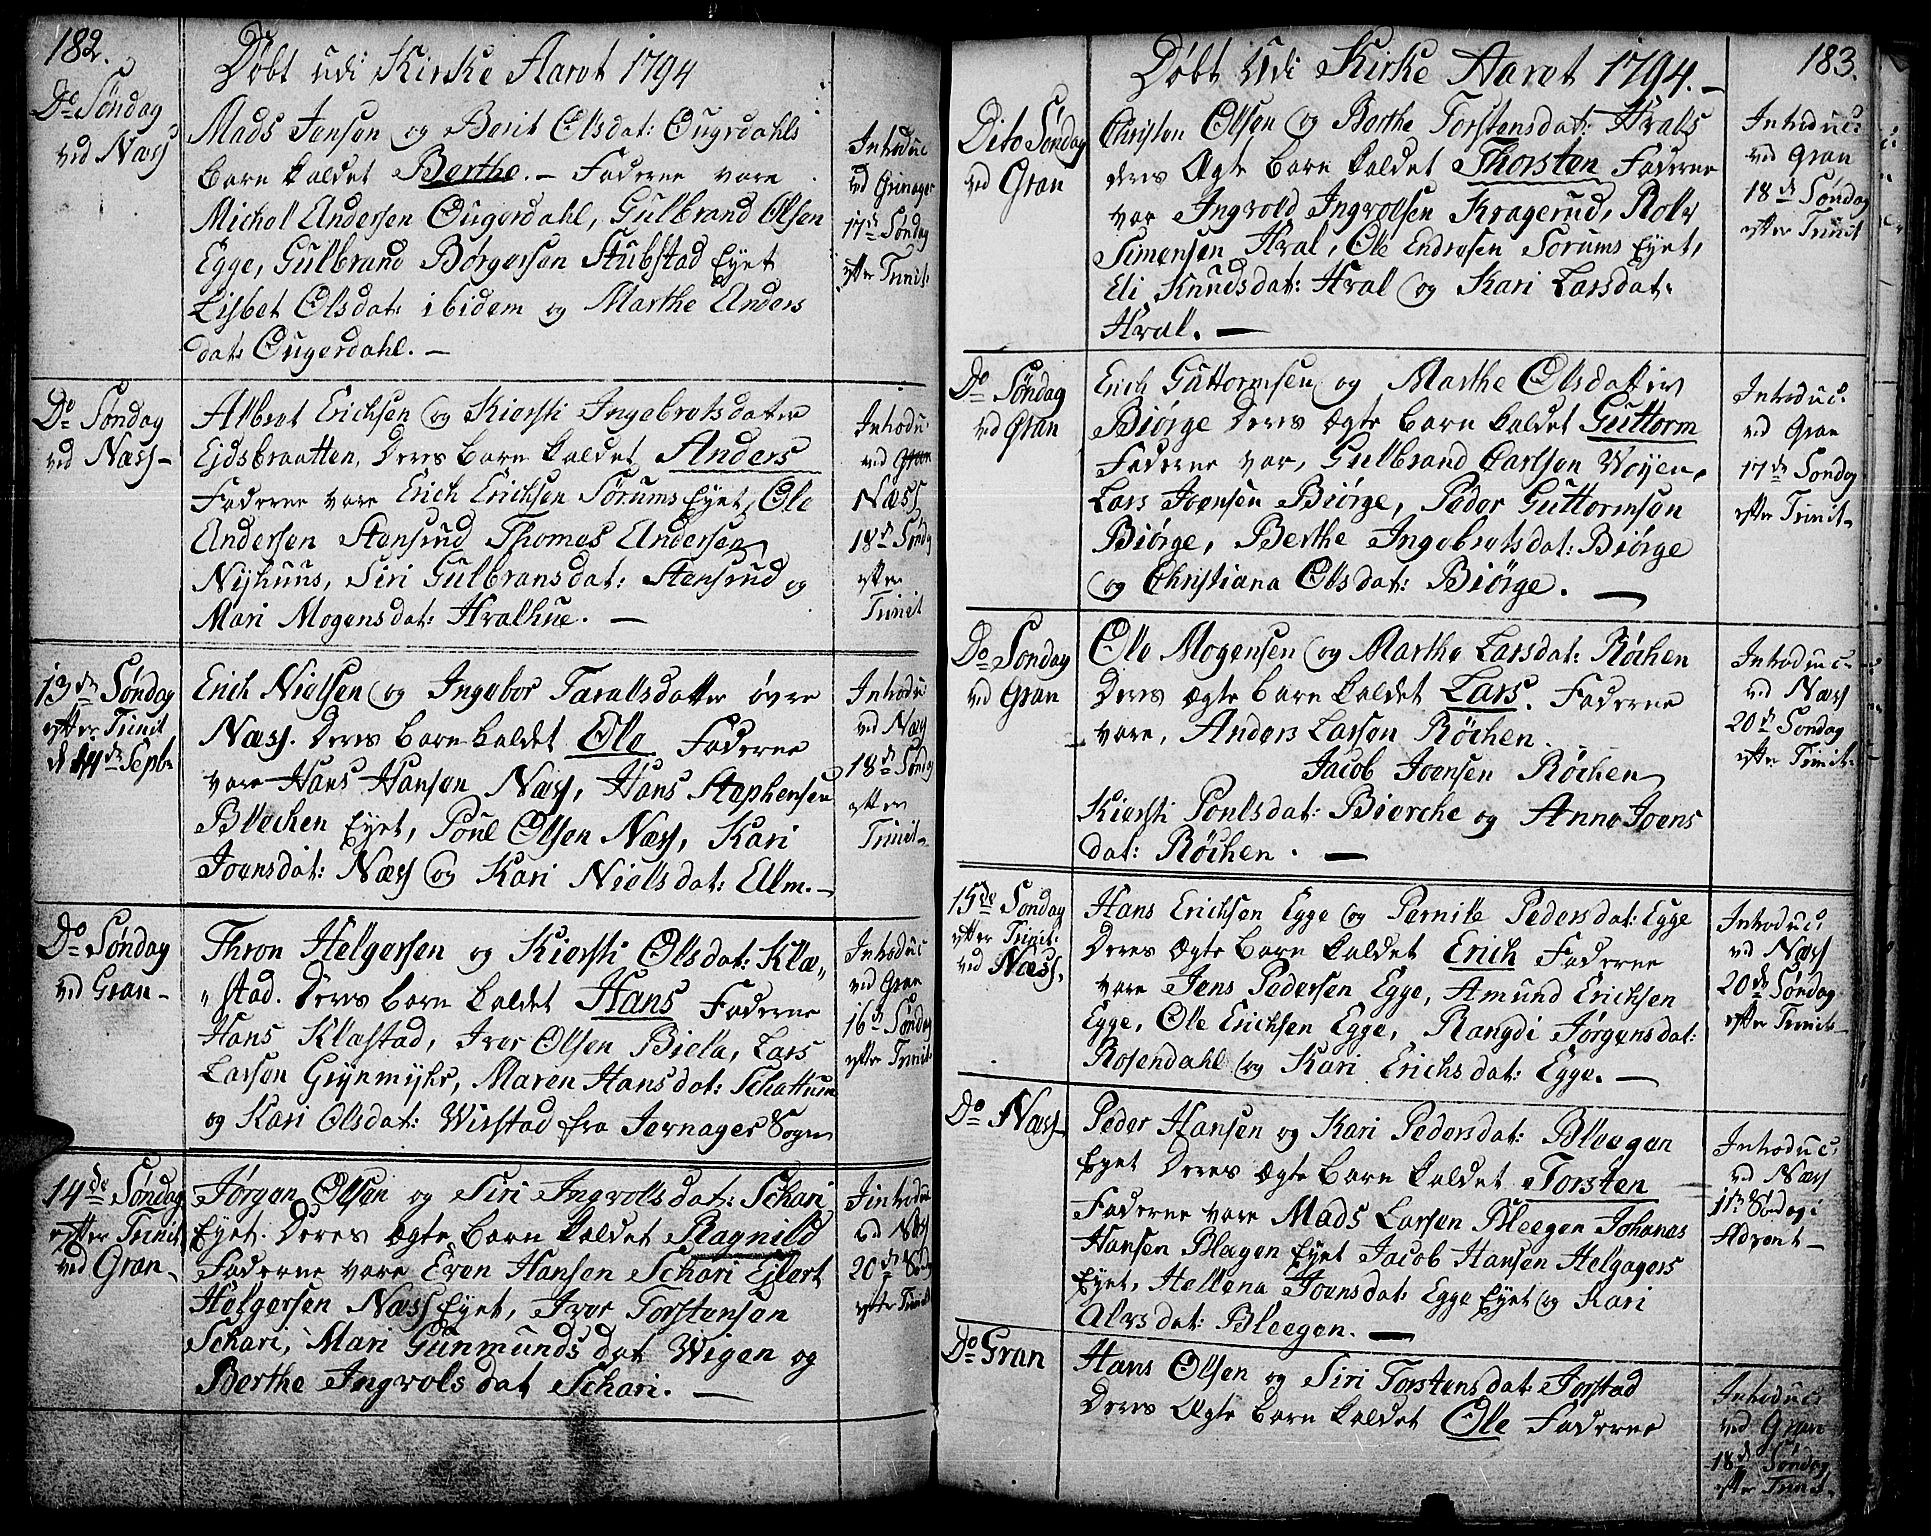 182.
Døbt udi Kirke Aaret 1794
Do Søndag
ved Næss
Mads Jensen og Berit Olsdat: Ougerdahls
barn kaldet Berthe. – Faderne vare
Michel Andersen Ougerdahl, Gulbrand Olsen
Egge, Gulbrand Borgersen Stubstad Eyet
Lisbet Olsdat: ibidem og Marthe Anders
dat: Ougerdahl. –
Introduc
vd Grinager
17de Søndag
efter Trinit:
Do Søndag
ved Næss –
Albret Erichsen og Kiersti Ingebretsdater
Ejdsbraatten, Deres barn kaldet Anders
Faderne vare Erich Erichsen Sørums Eyet, Ole
Andersen Stensrud Thomas Andersen
Nijhuus, Siri Gulbransdat: Stensrud og
Mari Mogensdat: Hvalhue. –
Introdu:
ved Gran
Næss
18de Sønd
efter
Trinit
13de Søndag
efter Trinit
d 14de Septbr
Erich Nielsen og Ingebor Taralsdatter øvre
Næss. Deres barn kaldet Ole Faderne
vare Hans Hansen Næss, Hans Stephensen
Blechen Eyet, Poul Olsen Næss, Kari
Joensdat: Næss og Kari Nielsdat: Ellm. –
Introdu:
vd Næss
18de Sønd
efter
Trinit –
Do Søndag
ved Gran –
Thron Helgersen og Kiersti Olsdat: Klæ„
„stad. Deres barn kaldet Hans Faderne
Hans Klæstad, Iver Olsen Biela, Lars
Larsen Grijnmyhr, Maren Hansdat: Schattum
og Kari Olsdat: Wirstad fra Jevnager Sogn
Introduc
ved Gran
16de Søndag
efter Trinit:
14de Søndag
efter Trinit
ved Gran –
Jørgen Olsen og Siri Ingvolsdat: Schari
Eyet. Deres ægte barn kaldet Ragnild
Faderne vare Even Hansen Schari Ejlert
Helgersen Næss Eyet, Iver Torstensen
Schari, Mari Gunmundsdat Wigen og
Berthe Ingvols dat Schari. –
Jintrodu
vd Næss
20de Sønd
efter Trinit
183.
Døbt Udi Kirke Aaret 1794. –
Dito Søndag
ved Gran
Christen Olsen og Berthe Torstensdat: Hvals
deres Ægte barn kaldet Thorsten Faderne
var Ingvold Ingvolsen Kragerud, Rolv
Simensen Hval, Ole Endresen Sørums Eyet,
Eli Knudsdat: Hval og Kari Larsdat:
Hval. –
Introduc:
ved Gran
18de Søndag
efter Trinit
Do Søndag
ved Gran
Erich Guttormsen og Marthe Olsdatter
Biørge deres ægte barn kaldet Guttorm
Faderne var, Gulbrand Carlsen Woyen,
Lars Joensen Biørge, Peder Guttormsen
Biørge, Berthe Ingebretsdat: Biørge
og Christiana Olsdat: Biørge. –
Introduc:
ved Gran
17de Søndag
efter Trinit –
Do Søndag
ved Gran
Ole Mogensen og Marthe Larsdat: Røchen
deres ægte barn kaldet Lars. Faderne
vare, Anders Larsen Røchen
Jacob Joensen Røchen
Kiersti Poulsdat: Bierche og Anne Joens
dat: Røchen. –
Introduc –
ved Næss
20de Søndag
efter Trinit:
15de Søndag
efter Trinit:
ved Næss,
Hans Erichsen Egge og Pernille Pedersdat: Egge
deres ægte barn kaldet Erich Faderne
vare Jens Pedersen Egge, Amund Erichsen
Egge, Ole Erichsen Egge, Rangdi Jørgensdat:
Rosendahl og Kari Erichsdat: Egge. –
Introduc:
ved Næss
20de Søndag
efter Trinit –
Do Næss
Peder Hansen og Kari Pedersdat: Bleegen
Eyet Deres ægte barn kaldet Torsten
Faderne vare Mads Larsen Bleegen Johanas
Hansen Blegen Eyet Jacob Hansen Helgagers
Eyet, Hellena Joensdat: Egge Eyet og Kari
Alvsdat: Bleegen. –
Introduc:
ved Næss
1ste Sødag i
Advent –
Do Gran
Hans Olsen og Siri Torstensdat: Jorstad
deres Ægte barn kaldet Ole Faderne
Introduc:
ved Gran
18de Søndag
efter Trinit –